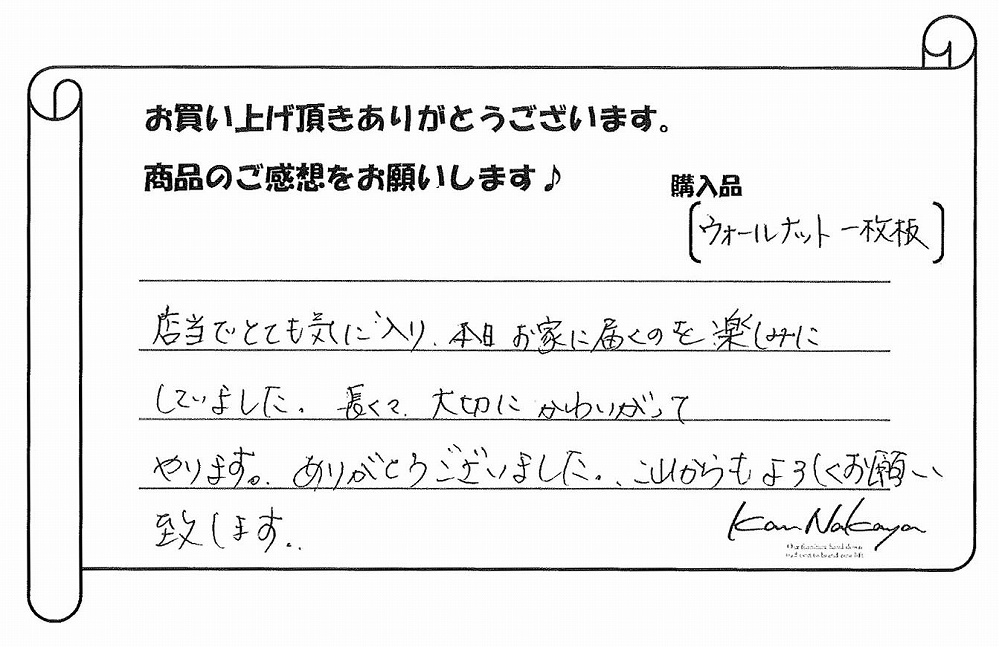 お買い上げ頂きありがとうございます。
商品のご感想をお願いします♪
購入品
[ウォールナット一枚板]
店当でとても気に入り、本日お家に届くのを楽しみに
していました。長くて、大切にかわいがって
やります。ありがとうございました。これからもよろしくお願い
致します。
Kan Nakaya